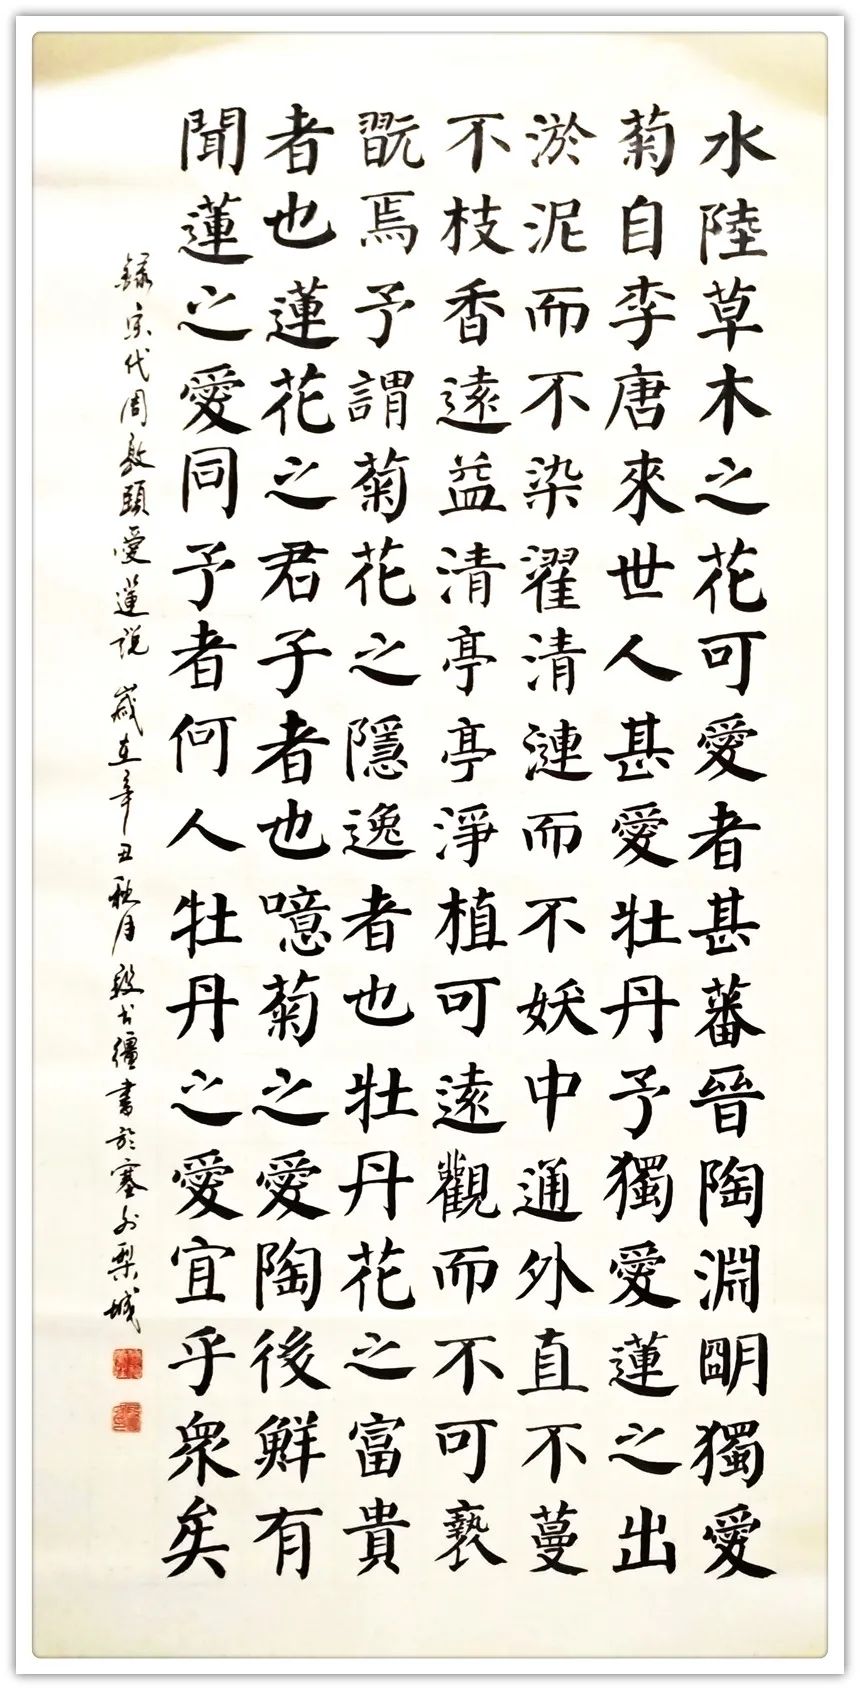 水陸草木之花可愛者甚蕃晉陶淵朙獨愛
菊自李唐來世人甚愛牡丹予獨愛蓮之出
淤泥而不染濯清漣而不妖中通外直不蔓
不枝香遠益清亭亭淨植可遠觀而不可褻
翫焉予謂菊花之隱逸者也牡丹花之富貴
者也蓮花之君子者也噫菊之愛陶後鮮有
聞蓮之愛同予者何人牡丹之愛宜乎衆矣
錄宋代周敦頤愛蓮說 歲在辛丑秋月段疆書於塞外梨城